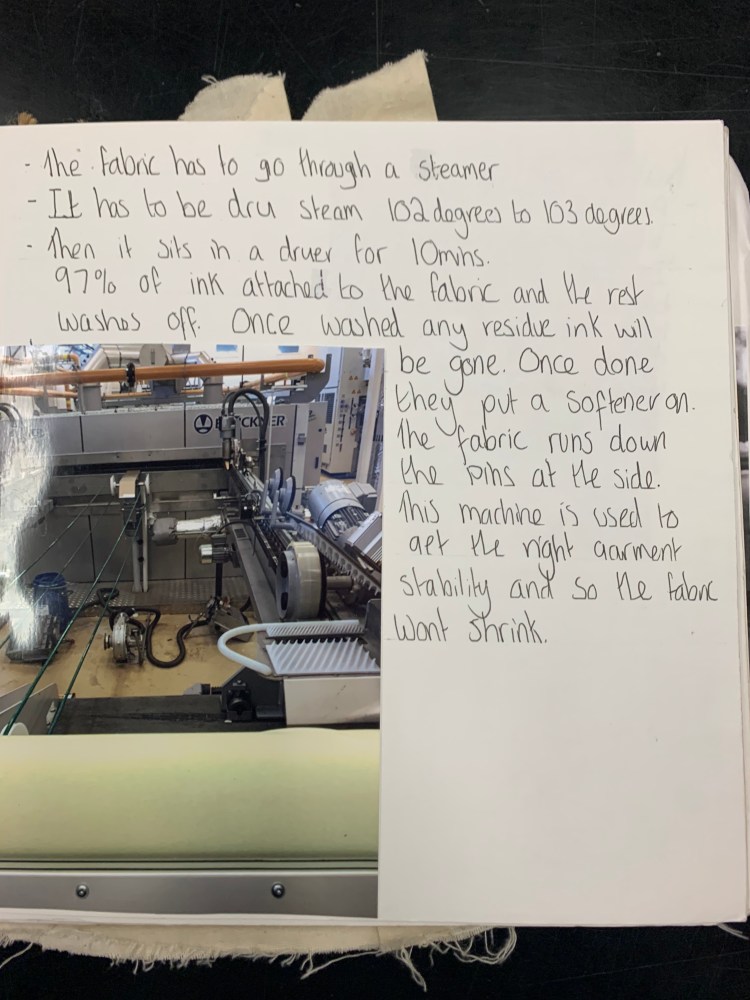 - The fabric has to go through a steamer
- It has to be dry steam 102 degrees to 103 degrees.
- Then it sits in a dryer for 10mins.
97% of ink attached to the fabric and the rest
washes off. Once washed any residue ink will
be gone. Once done
they put a softener on.
The fabric runs down
the pins at the side.
This machine is used to
get the right garment
stability and so the fabric
wont shrink.
BRÜCKNER